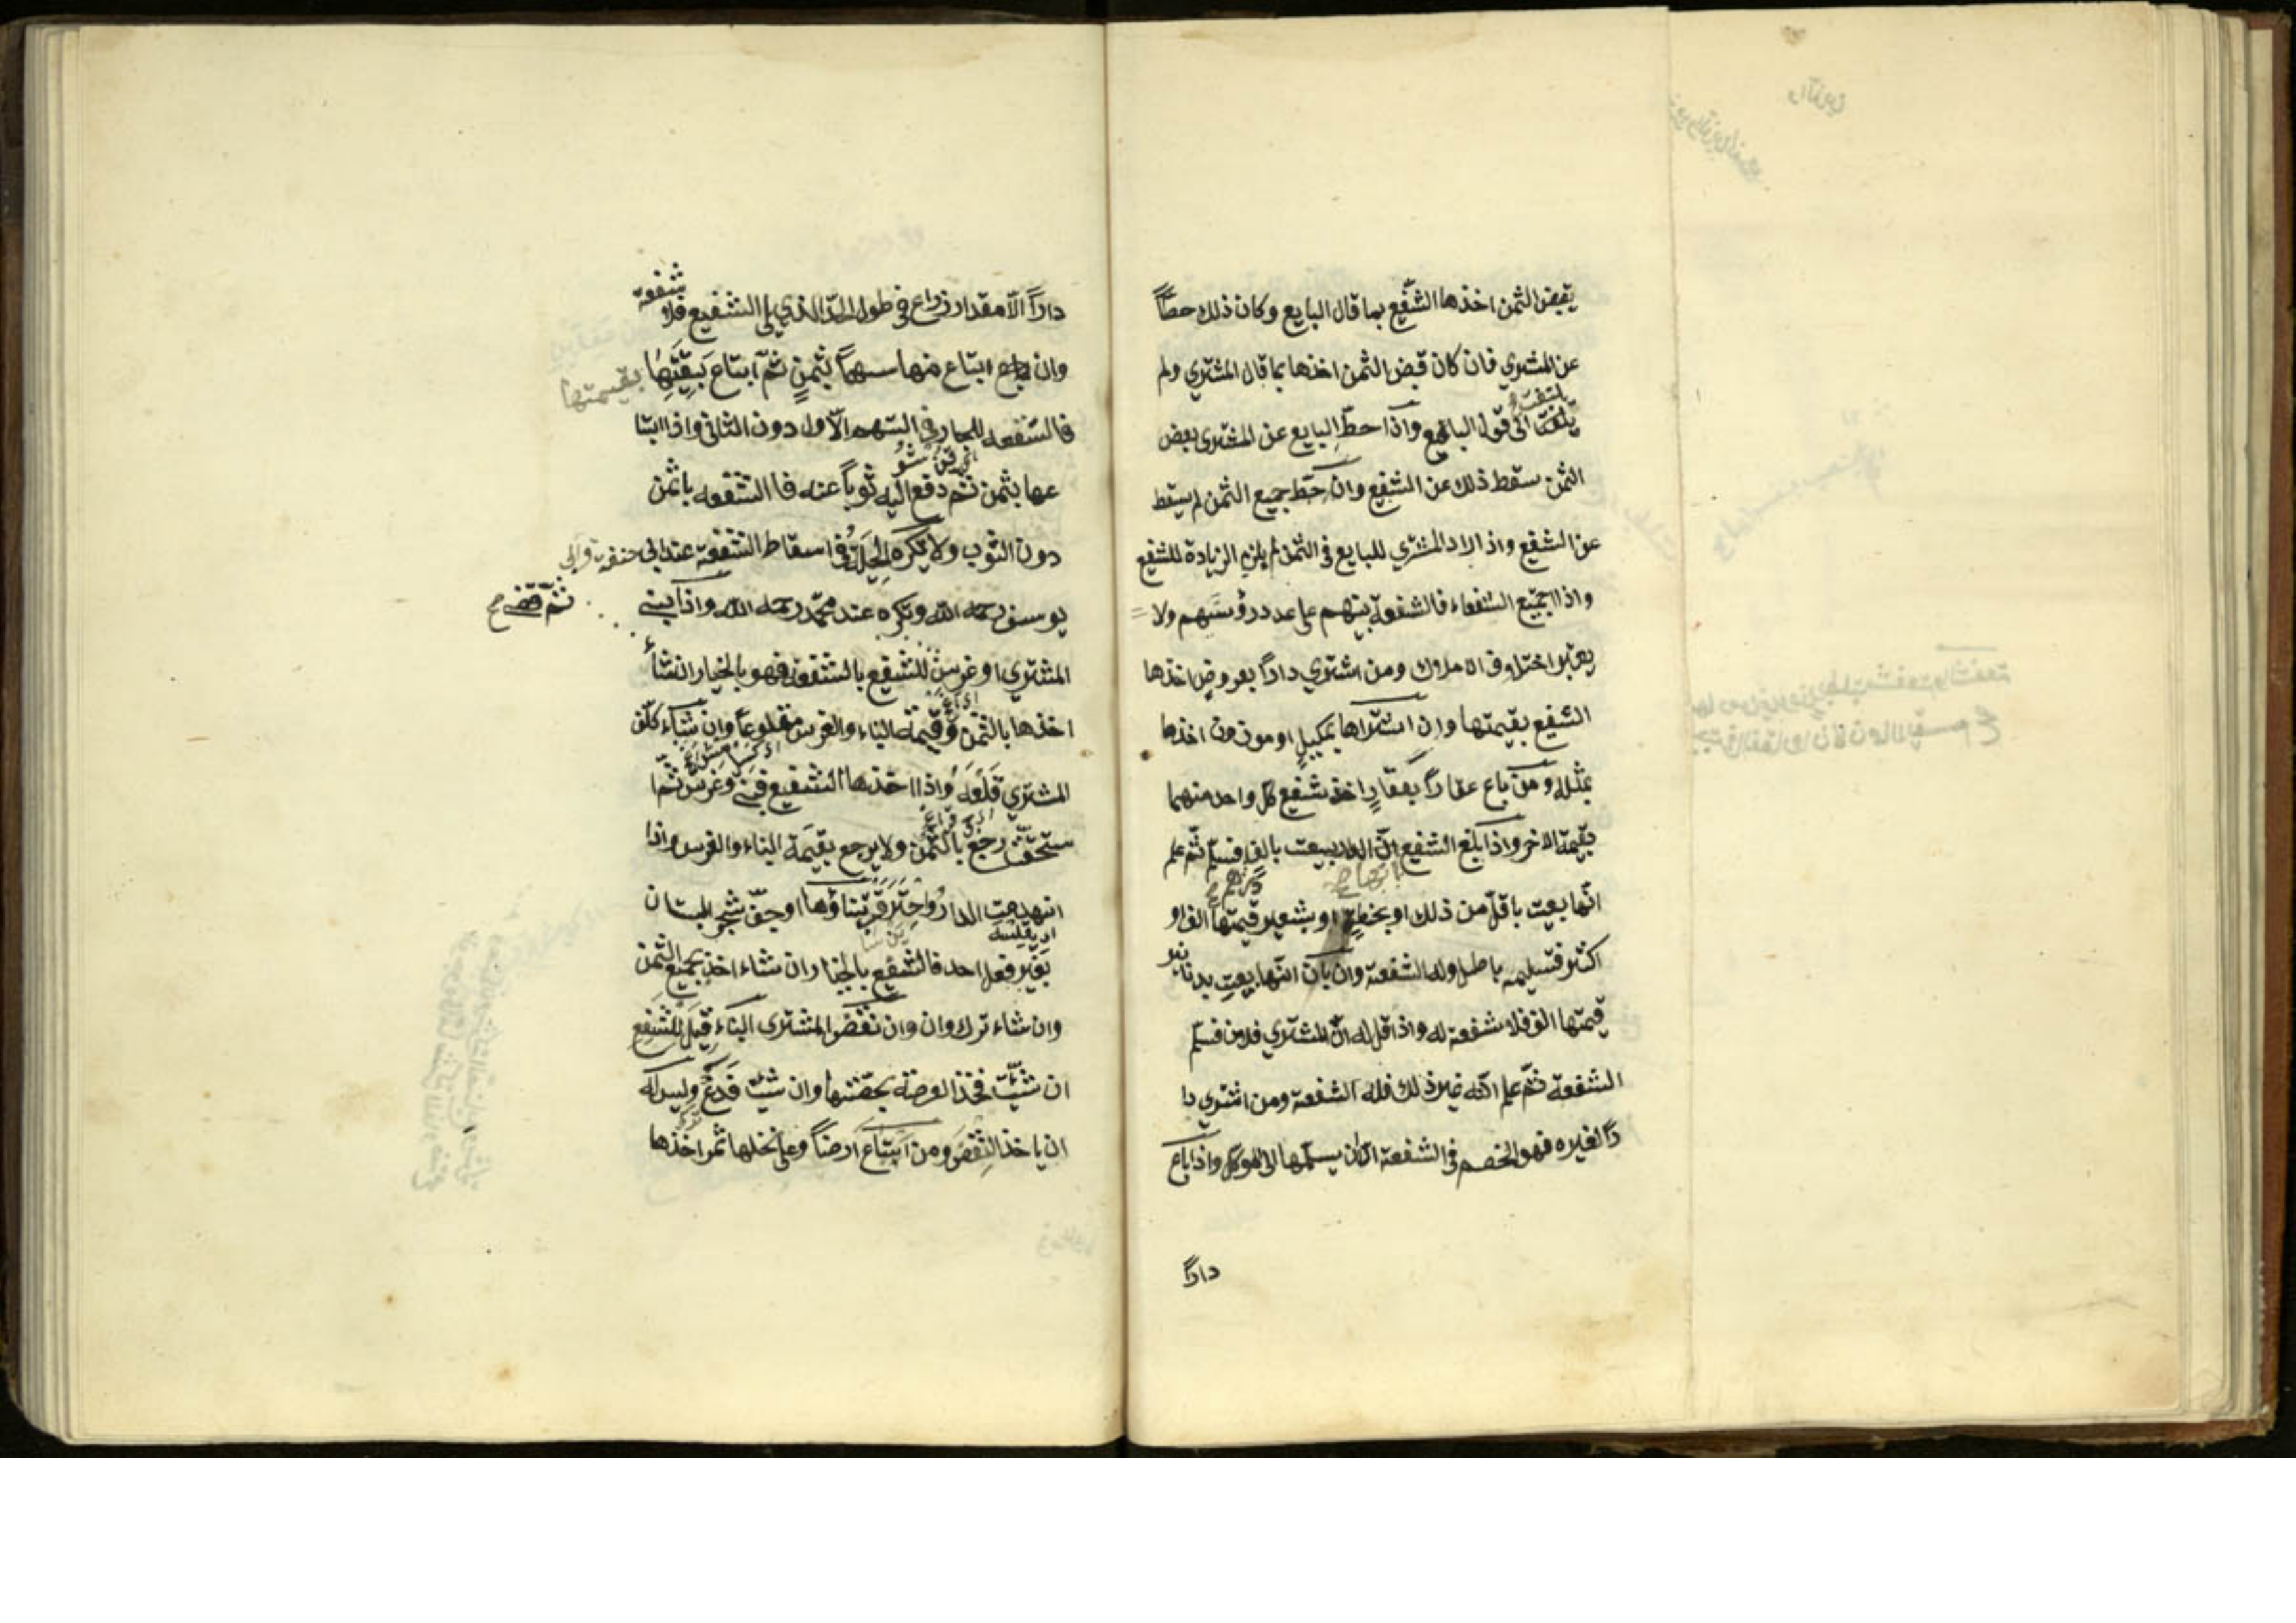 يقبض الثمن اخذها الشفيع بما قال البايع وكان ذلك حطاً
عن المشتري فان كان قبض الثمن اخذها بما قال المشتري ولم
يلتفت
يلتفت الى قول البايع واذا حطّ البايع عن المشترى بعض
الثمن سقط ذلك عن الشفيع وان حَطّ جميع الثمن لم يسقط
عن الشفيع واذا زاد المشتري للبايع في الثمن لم يلزم الزيادة للشفيع
واذا اجتمع الشفعاء فالشفعة بينهم على عدد رؤسهم ولا
يعتبر اختلاف الاملاك ومن اشتري داراً بعروض اخذها
الشفيع بقيمتها وان اشتراها بمكيل او موزون اخذها
بمثله ومن باع عقاراً بعقارٍ اخذ شفيع كل واحد منهما
بقيمة الاخر واذا بلغ الشفيع انّ الدار بيعت بالف فسلّم ثم علم
انّها بيعت باقلّ من ذلك او بحنطةٍ او بشعير قيمتها الف او
اكثر فتسليمه باطل وله الشفعة وان بان انّها بيعت بدنانير
قيمتها الف فلا شفعة له واذا قيل له انّ المشتري فلان فسلّم
الشفعة ثمّ علم انّه غير ذلك فله الشفعة ومن اشتري دا
راً لغيره فهو الخصم في الشفعة الا ان يسلّمها الى الموكل واذا باع
داراً
داراً الاّ مقدار ذراع في طول الحدّ الذي يلي الشفيع فلا شفعة
وان باع ابتاع منها سهماً بثمنٍ ثمّ ابتاع بقيّتها
بقيمتها
فالشفعه للجار في السّهم الاّول دون الثاني واذا ابتا
عها بثمن ثم دفع اليه ثوباً عنه فا الشفعه باثمن
دون الثوب ولا يكره الحيلة في اسقاط الشفعة عند ابى حنفة وابى
يوسف رحمه الله وتكره عند محمّد رحمه الله واذا بنى
ثمّ قضى صح
المشتري او غرس للشفيع بالشفعة فهو بالخيار ان شأ
اخذها بالثمن وقيمة البناء والغرس مقلوعاً وان شاء كلّف
المشتري قلعه واذا اخذها الشفيع فبنى وغرس ثمّا
ستحقّت رجع بالثمن ولا يرجع بقيمة البناء والغرس واذا
انهدمت الدار واحترق بناؤها او جفّ شجر البستان
بغير فعل احد فالشفيع بالخيار ان شاء اخذ بجميع الثمن
وان شاء ترك وان وان نقض المشترى البناء قيل للشفيع
ان شئت فخذ العرصة بحصّتها وان شئت فدع وليس له
ان ياخذ النقض ومن ابتاع ارضاً وعلى نخلها ثمر اخذها